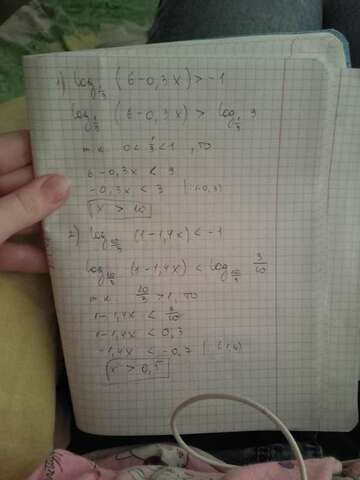 1) log_{1/3} (6-0,3x) > -1
log_{1/3} (6-0,3x) > log_{1/3} 9
т.к. 0 < 1/3 < 1, то
6-0,3x < 9
-0,3x < 3 | :(-0,3)
x > 10
2) log_{10/3} (1-1,4x) < -1
log_{10/3} (1-1,4x) < log_{10/3} 3/10
т.к. 10/3 > 1, то
1-1,4x < 3/10
1-1,4x < 0,3
-1,4x < -0,7 | :(-1,4)
x > 0,5